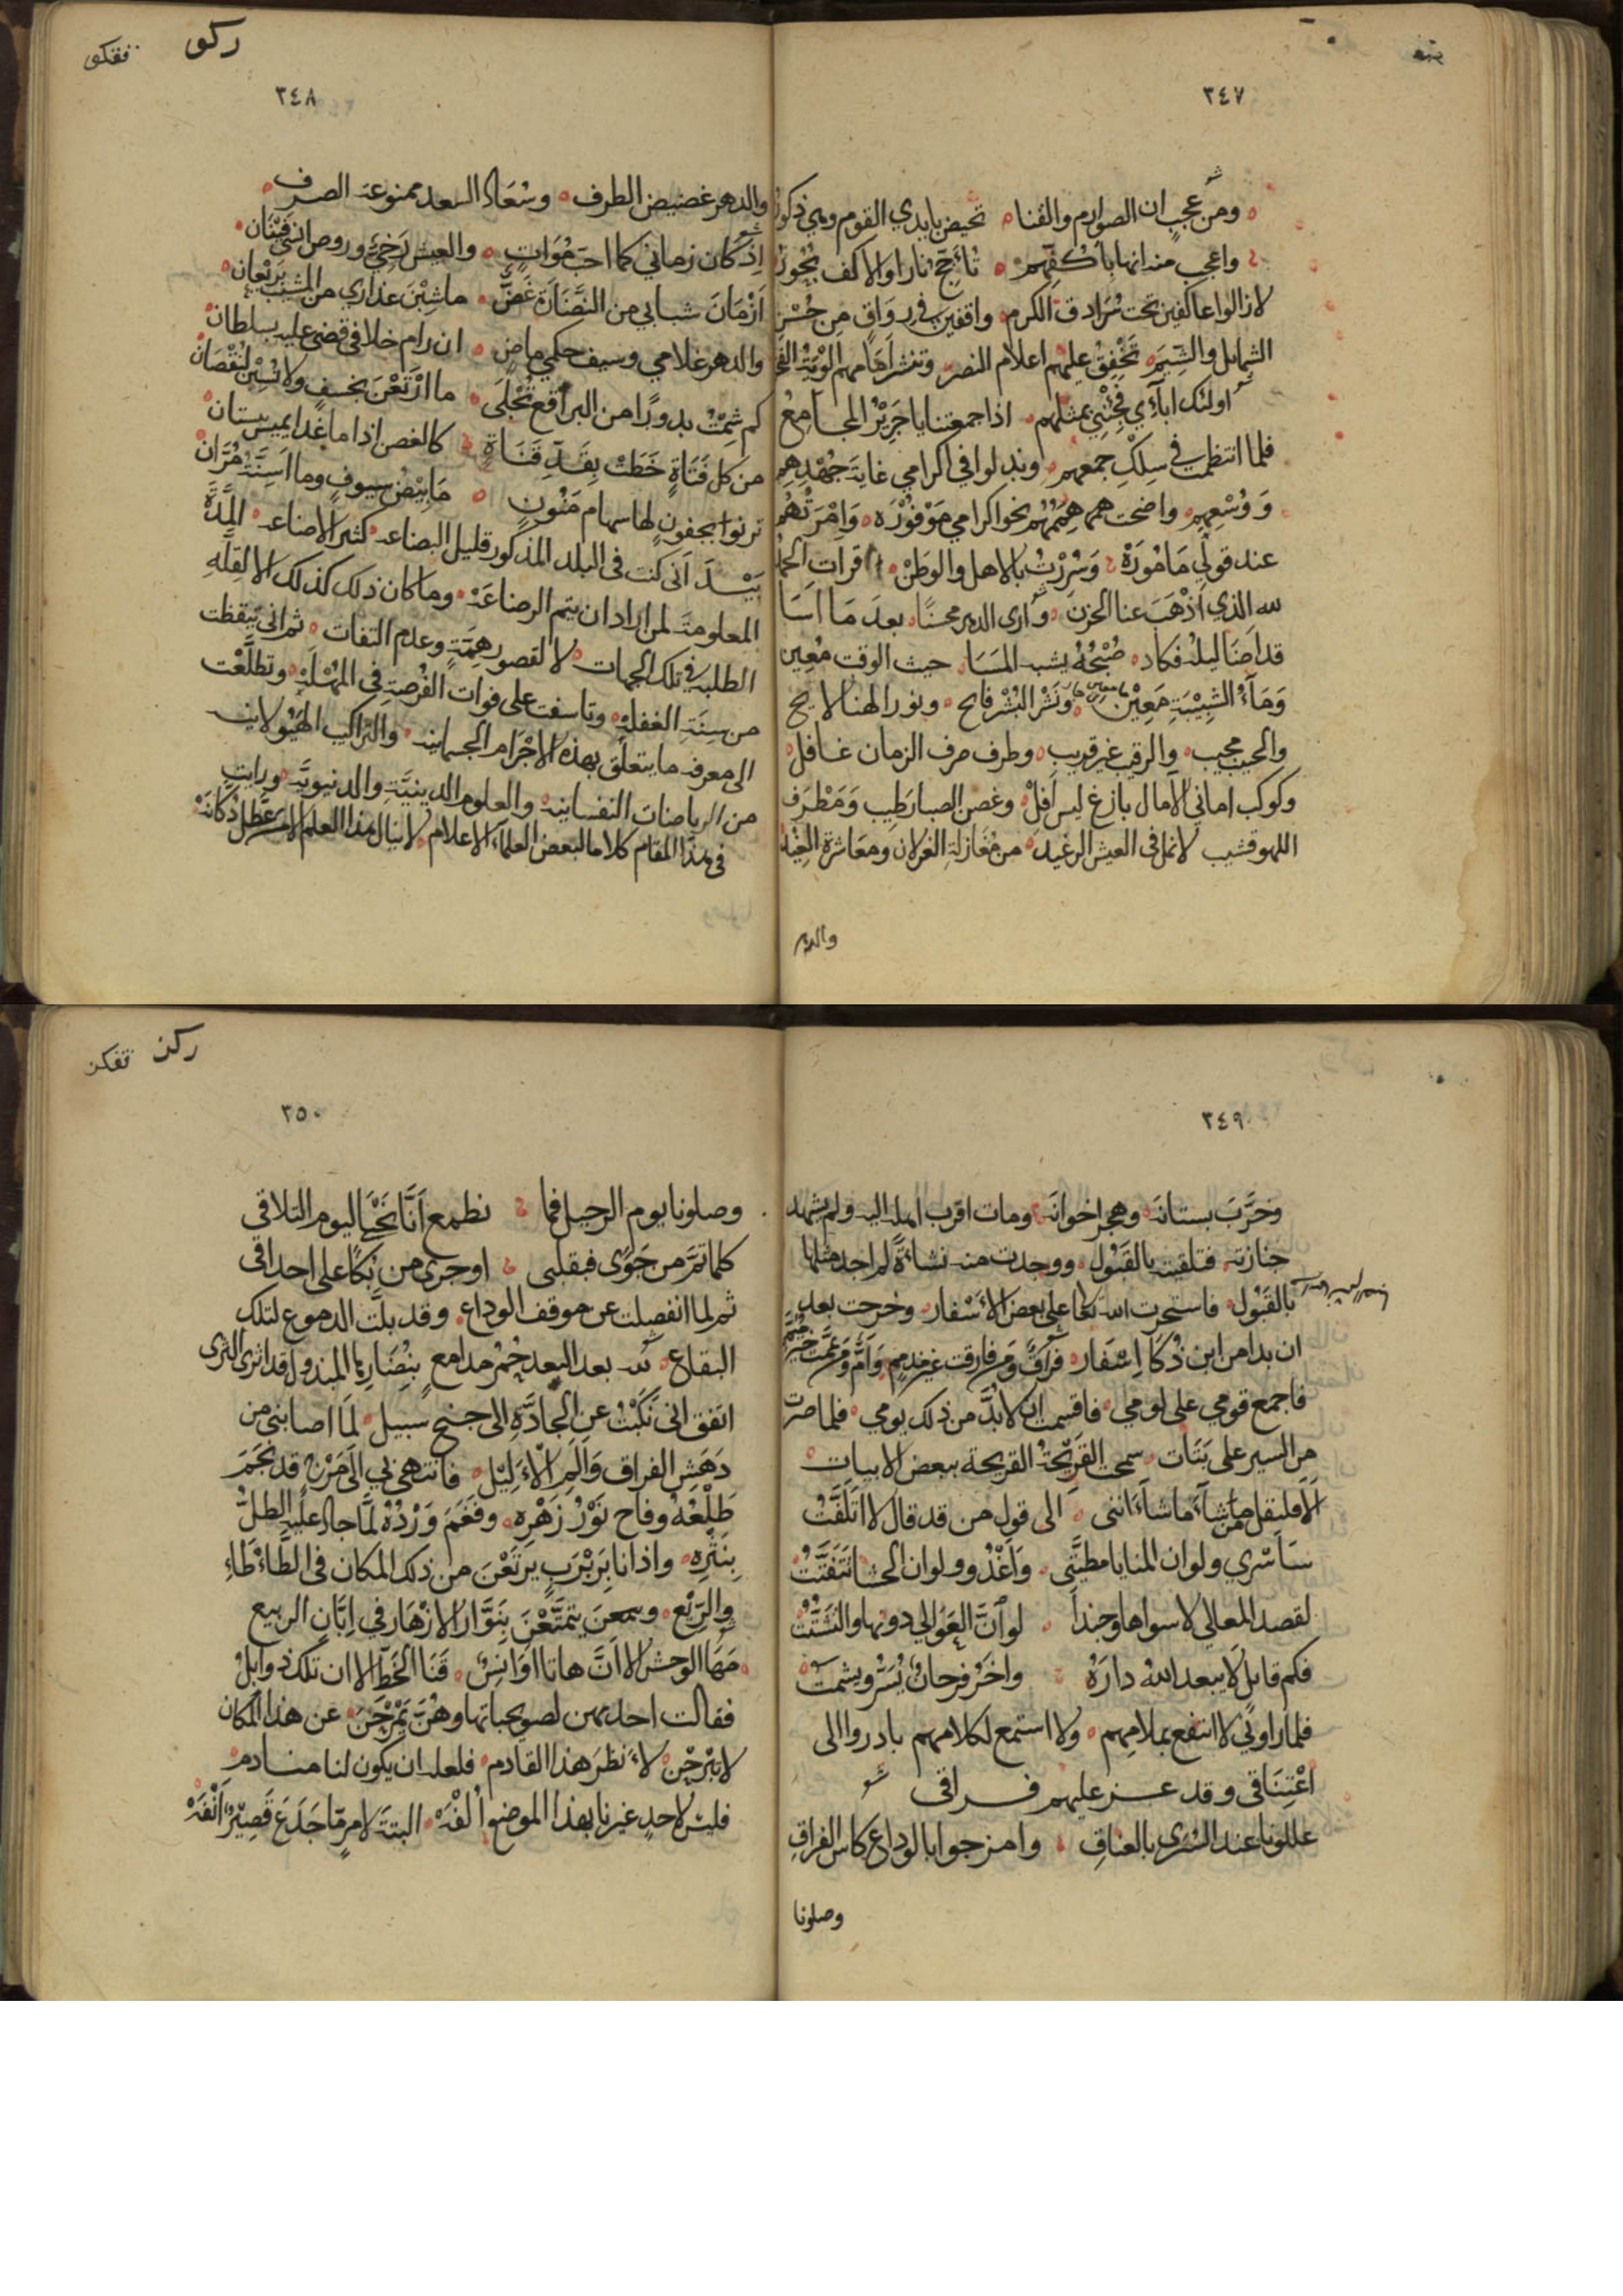 ٣٤٧
ومن عجب ان الصوارم والقنا تحيض بايدي القوم وهي ذكور
واعجب منه انها باكفهم تأجج نارا والاكف بحور
لازالوا عاكفين تحت سرادق الكرم واقفين في رواق من حسن
الشمايل والشيم تخفق عليهم اعلام النصر وتنشر امامهم الوية الفخر
اولئك ابآءي فجئني بمثلهم اذا جمعتنا يا جرير المجامع
فلما انتظمت في سلك جمعهم وبذلوا في اكرامي غاية جهدهم
ووسعهم واضحت هممهم نحو اكرامي موفوره وامرتهم
عند قولي مأموره وسررت بالاهل والوطن قرات الحمد
لله الذي اذهب عنا الحزن وأرى الدهر محسنا بعد ما اسا
قد اضا ليله فكاد صبحه يشبه المسا حيث الوقت معين
ومآء الشبيبة معين ونشر البشر فايح ونور الهنا لايح
والحبيب مجيب والرقيب غير قريب وطرف صرف الزمان غافل
وكوكب اماني الآمال بازغ ليس آفل وغصن الصبا رطيب ومطرف
اللهو قشيب لانمل في العيش الرغيد من مغازلة الغزلان ومعاشرة الغيد
والدهر
ركو
٣٤٨
والدهر غضيض الطرف وسعاد السعد ممنوعة الصرف
اذ كان زماني كما احب مؤات والعيش رخي وروض انسي فينان
ازمان شبابي من النضارة غض ما شبن عذاري من المشيب ريعان
والدهر غلامي وسيف حكمي ماض ان رام خلافي قضى عليه بسلطان
كم شمت بدورا من البراقع تجلى ما ارتعن بخسف ولا نسبن لنقصان
من كل فتاة خطت بقد قناة كالغصن اذا ما غدا يميس ببستان
ترنو بجفون لها سهام منون ما بيض سيوف وما اسنة مران
بيد انى كنت فى البلد المذكور قليل البضاعه كثير الاضاعه المدة
المعلومة لمن اراد ان يتم الرضاعة وما كان ذلك كذلك الا لقلة
الطلبه في تلك الجهات لا لقصور همة وعدم التفات ثم انى تيقظت
من سنة الغفله وتاسفت على فوات الفرصة في المهلة وتطلعت
الى معرفة ما يتعلق بهذه الاجرام الجسمانيه والتراكيب الهيولانيه
من الرياضات النفسانيه والعلوم الدينية والدنيوية ورايت
في هذا المقام كلاما لبعض العلمآء الاعلام لا ينال هذا العلم الا من عطل دكانه
٣٤٩
وخرب بستانه وهجر اخوانه ومات اقرب اهله اليه ولم يشهد
جنازته فتلقيته بالقبول ووجدت منه نشاة لم اجد مثلها
بالقبول فاستخرت الله تعالى على بعض الاسفار وخرجت بعد
ان بدا من ابن ذكا إسفار فراق ومن فارقت غير مذمم وأم ومن يممت خير ميمم
فاجمع قومي على لومي فاقسمت ان لابد من ذلك يومي فلما صرت
من السير على بتات سمحت القريحة القريحة ببعض الابيات
الا فليقل من شآء ما شآء انني الى قول من قد قال لا اتلفت
سأسري ولو ان المنايا مطيتى واغدو ولو ان الحشا تتفتت
لقصد المعالي لا سواها وحبذا لو ان العوالي دونها والتشتت
فكم قايل لا يبعد الله داره واخر فرحان يسر ويشمت
فلما راوني لا انتفع بملامهم ولا استمع لكلامهم بادروا الى
اعتناقي وقد عز عليهم فراقي
عللونا عند السرى بالعناق وامزجوا بالوداع كاس الفراق
وصلونا
ركن
٣٥٠
وصلونا يوم الرحيل فما نطمع أنا نحيا ليوم التلاقي
كلما تم من جوى فبقلبى او جرى من بكا على احداقى
ثم لما انفصلت عن موقف الوداع وقد بلت الدموع لتلك
البقاع
اتفق انى نكبت عن الجادة الى جنح سبيل لما اصابنى من
دهش الفراق والم الأليل فانتهى بي الى مرج قد نجم
طلعه وفاح نور زهره وفغم ورده لما جاد عليه الطل
بنثره واذا انا بربرب يرتعن من ذلك المكان في الطأطآء
والريع وسمعن يتمتعن بنوار الازهار في ابان الربيع
مها الوحش الا ان هاتا اوانس قنا الخط الا ان تلك ذوابل
فقالت احديهن لصويحباتها وهن يمرحن عن هذا المكان
لا تبرحن لأنظر هذا القادم فلعله ان يكون لنا منادم
فليس لاحد غيرنا بهذا الموضع ألفه البتة لامر ما جدع قصير أنفه